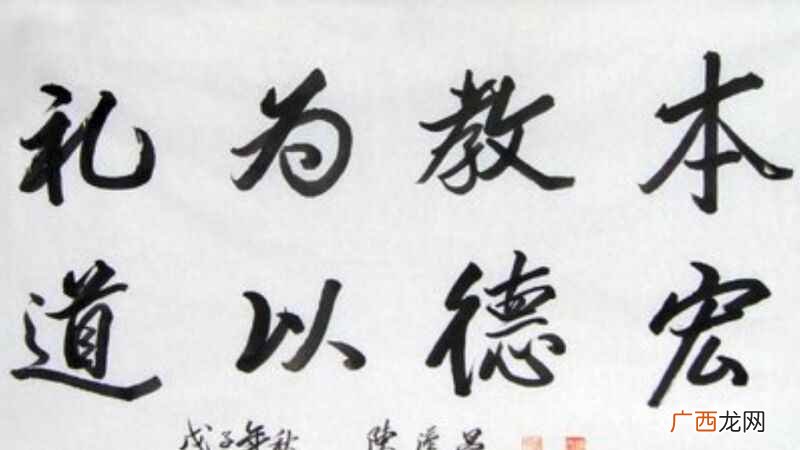 礼为教本
道以德宏
戊子年秋
广西龙网